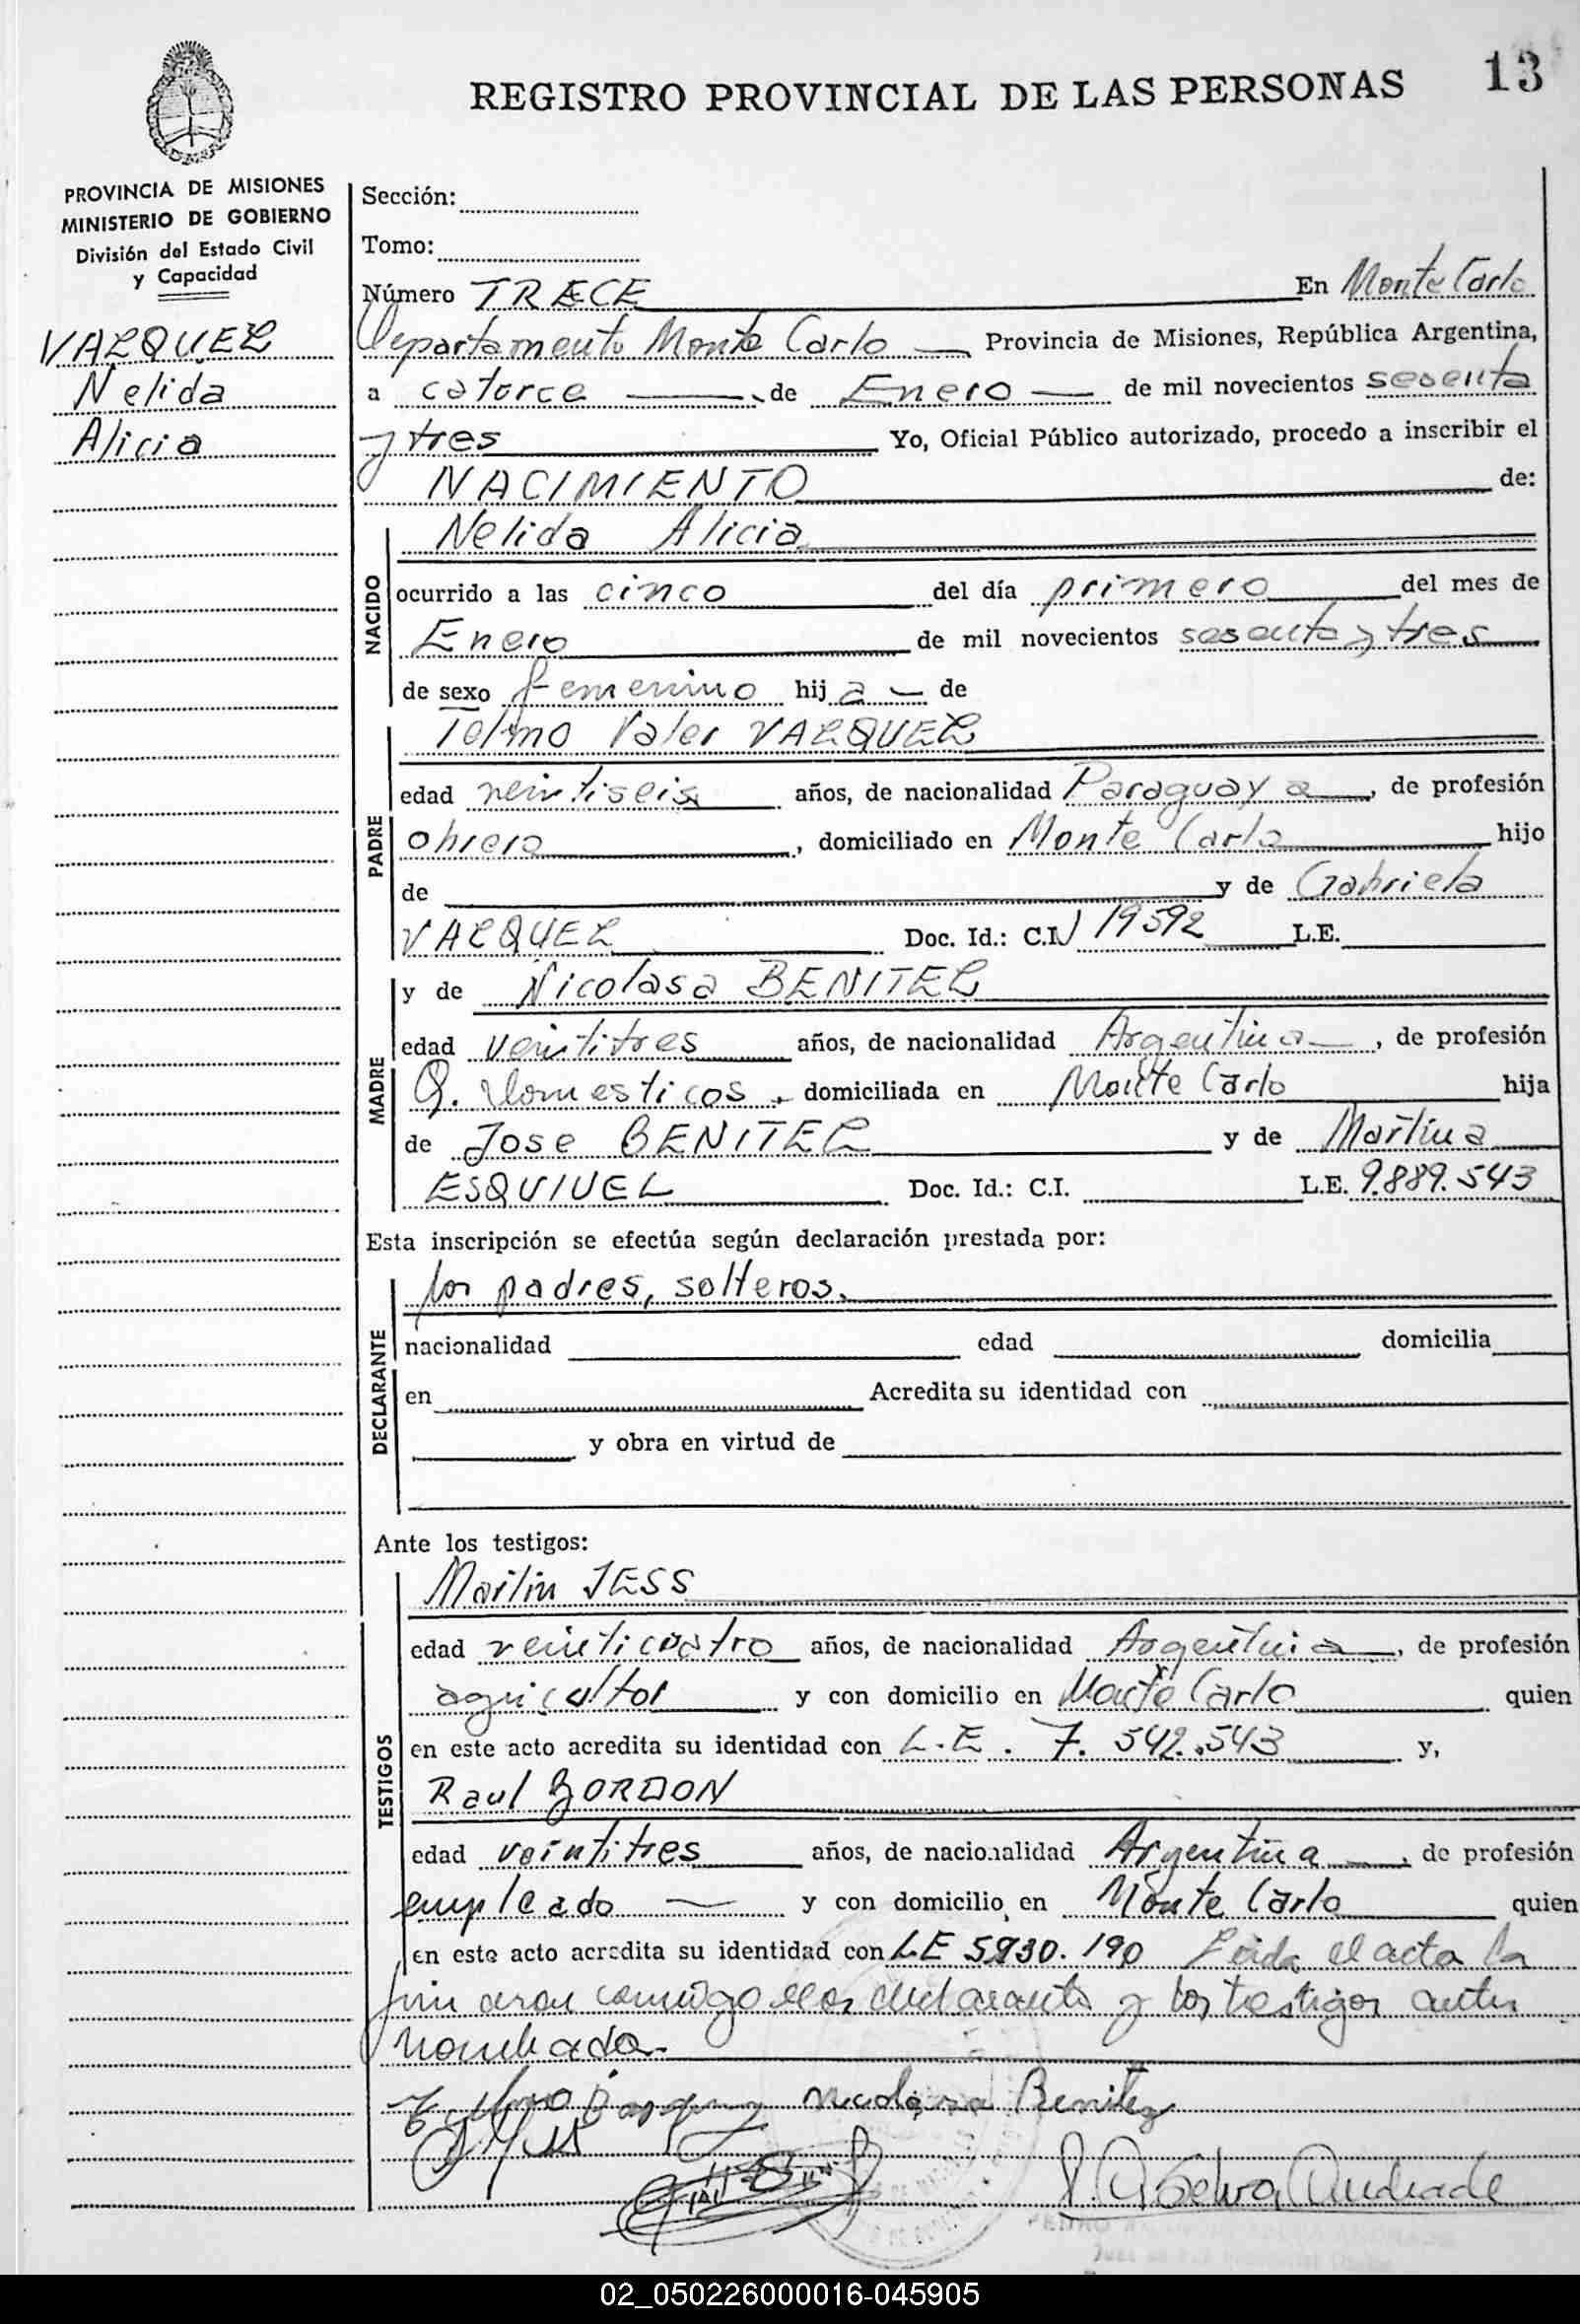 REGISTRO PROVINCIAL DE LAS PERSONAS 13
PROVINCIA DE MISIONES
MINISTERIO DE GOBIERNO
División del Estado Civil
y Capacidad
VAZQUEZ
Nelida
Alicia
Sección:
Tomo:
Número TRECE En Monte Carlo
Departamento Monte Carlo — Provincia de Misiones, República Argentina,
a catorce — de Enero — de mil novecientos sesenta
y tres Yo, Oficial Público autorizado, procedo a inscribir el
NACIMIENTO de:
NACIDO
Nelida Alicia
ocurrido a las cinco del día primero del mes de
Enero de mil novecientos sesenta y tres
de sexo femenino hija — de
PADRE
Telmo Valer VAZQUEZ
edad veintiseis años, de nacionalidad Paraguaya, de profesión
obrero, domiciliado en Monte Carlo hijo
de y de Gabriela
VAZQUEZ Doc. Id.: C.I. 19592 L.E.
MADRE
y de Nicolasa BENITEZ
edad veintitres años, de nacionalidad Argentina, de profesión
Q. domesticos, domiciliada en Monte Carlo hija
de Jose BENITEZ y de Martina
ESQUIVEL Doc. Id.: C.I. L.E. 9.889.543
Esta inscripción se efectúa según declaración prestada por:
DECLARANTE
los padres, solteros.
nacionalidad edad domicilia
en Acredita su identidad con
y obra en virtud de
Ante los testigos:
TESTIGOS
Martin JESS
edad veinticuatro años, de nacionalidad Argentina, de profesión
agricultor y con domicilio en Monte Carlo quien
en este acto acredita su identidad con L.E. 7.542.543 y,
Raul BORDON
edad veintitres años, de nacionalidad Argentina, de profesión
empleado — y con domicilio en Monte Carlo quien
en este acto acredita su identidad con LE 5930.190 Leida el acta la
firmaron conmigo los declarante y los testigos antes
nombrado.
Telmo Vazquez Nicolasa Benitez
P. A Selva Andrade
02_050226000016-045905